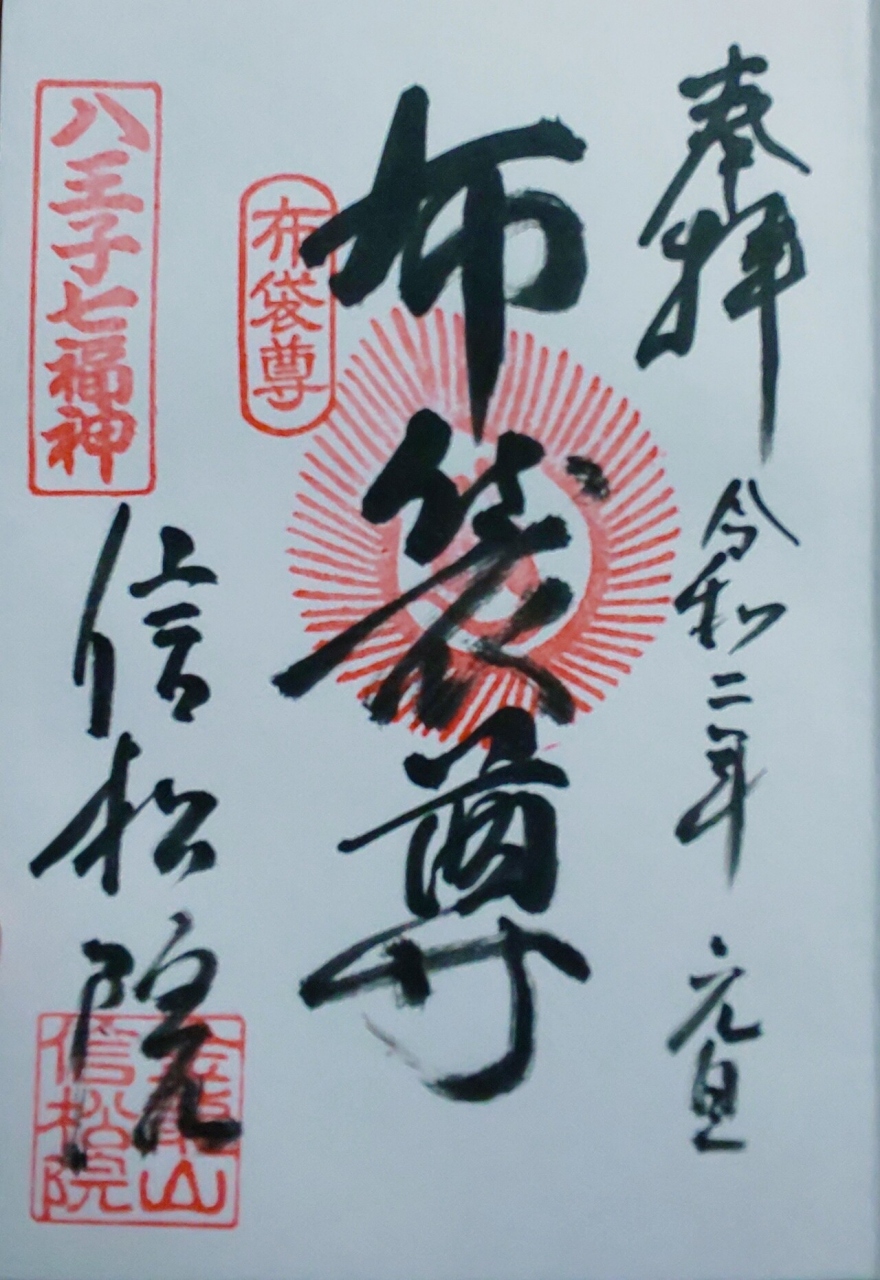 奉拝
令和二年 元旦
布袋尊
布袋尊
八王子七福神
信松院
金龍山
信松院